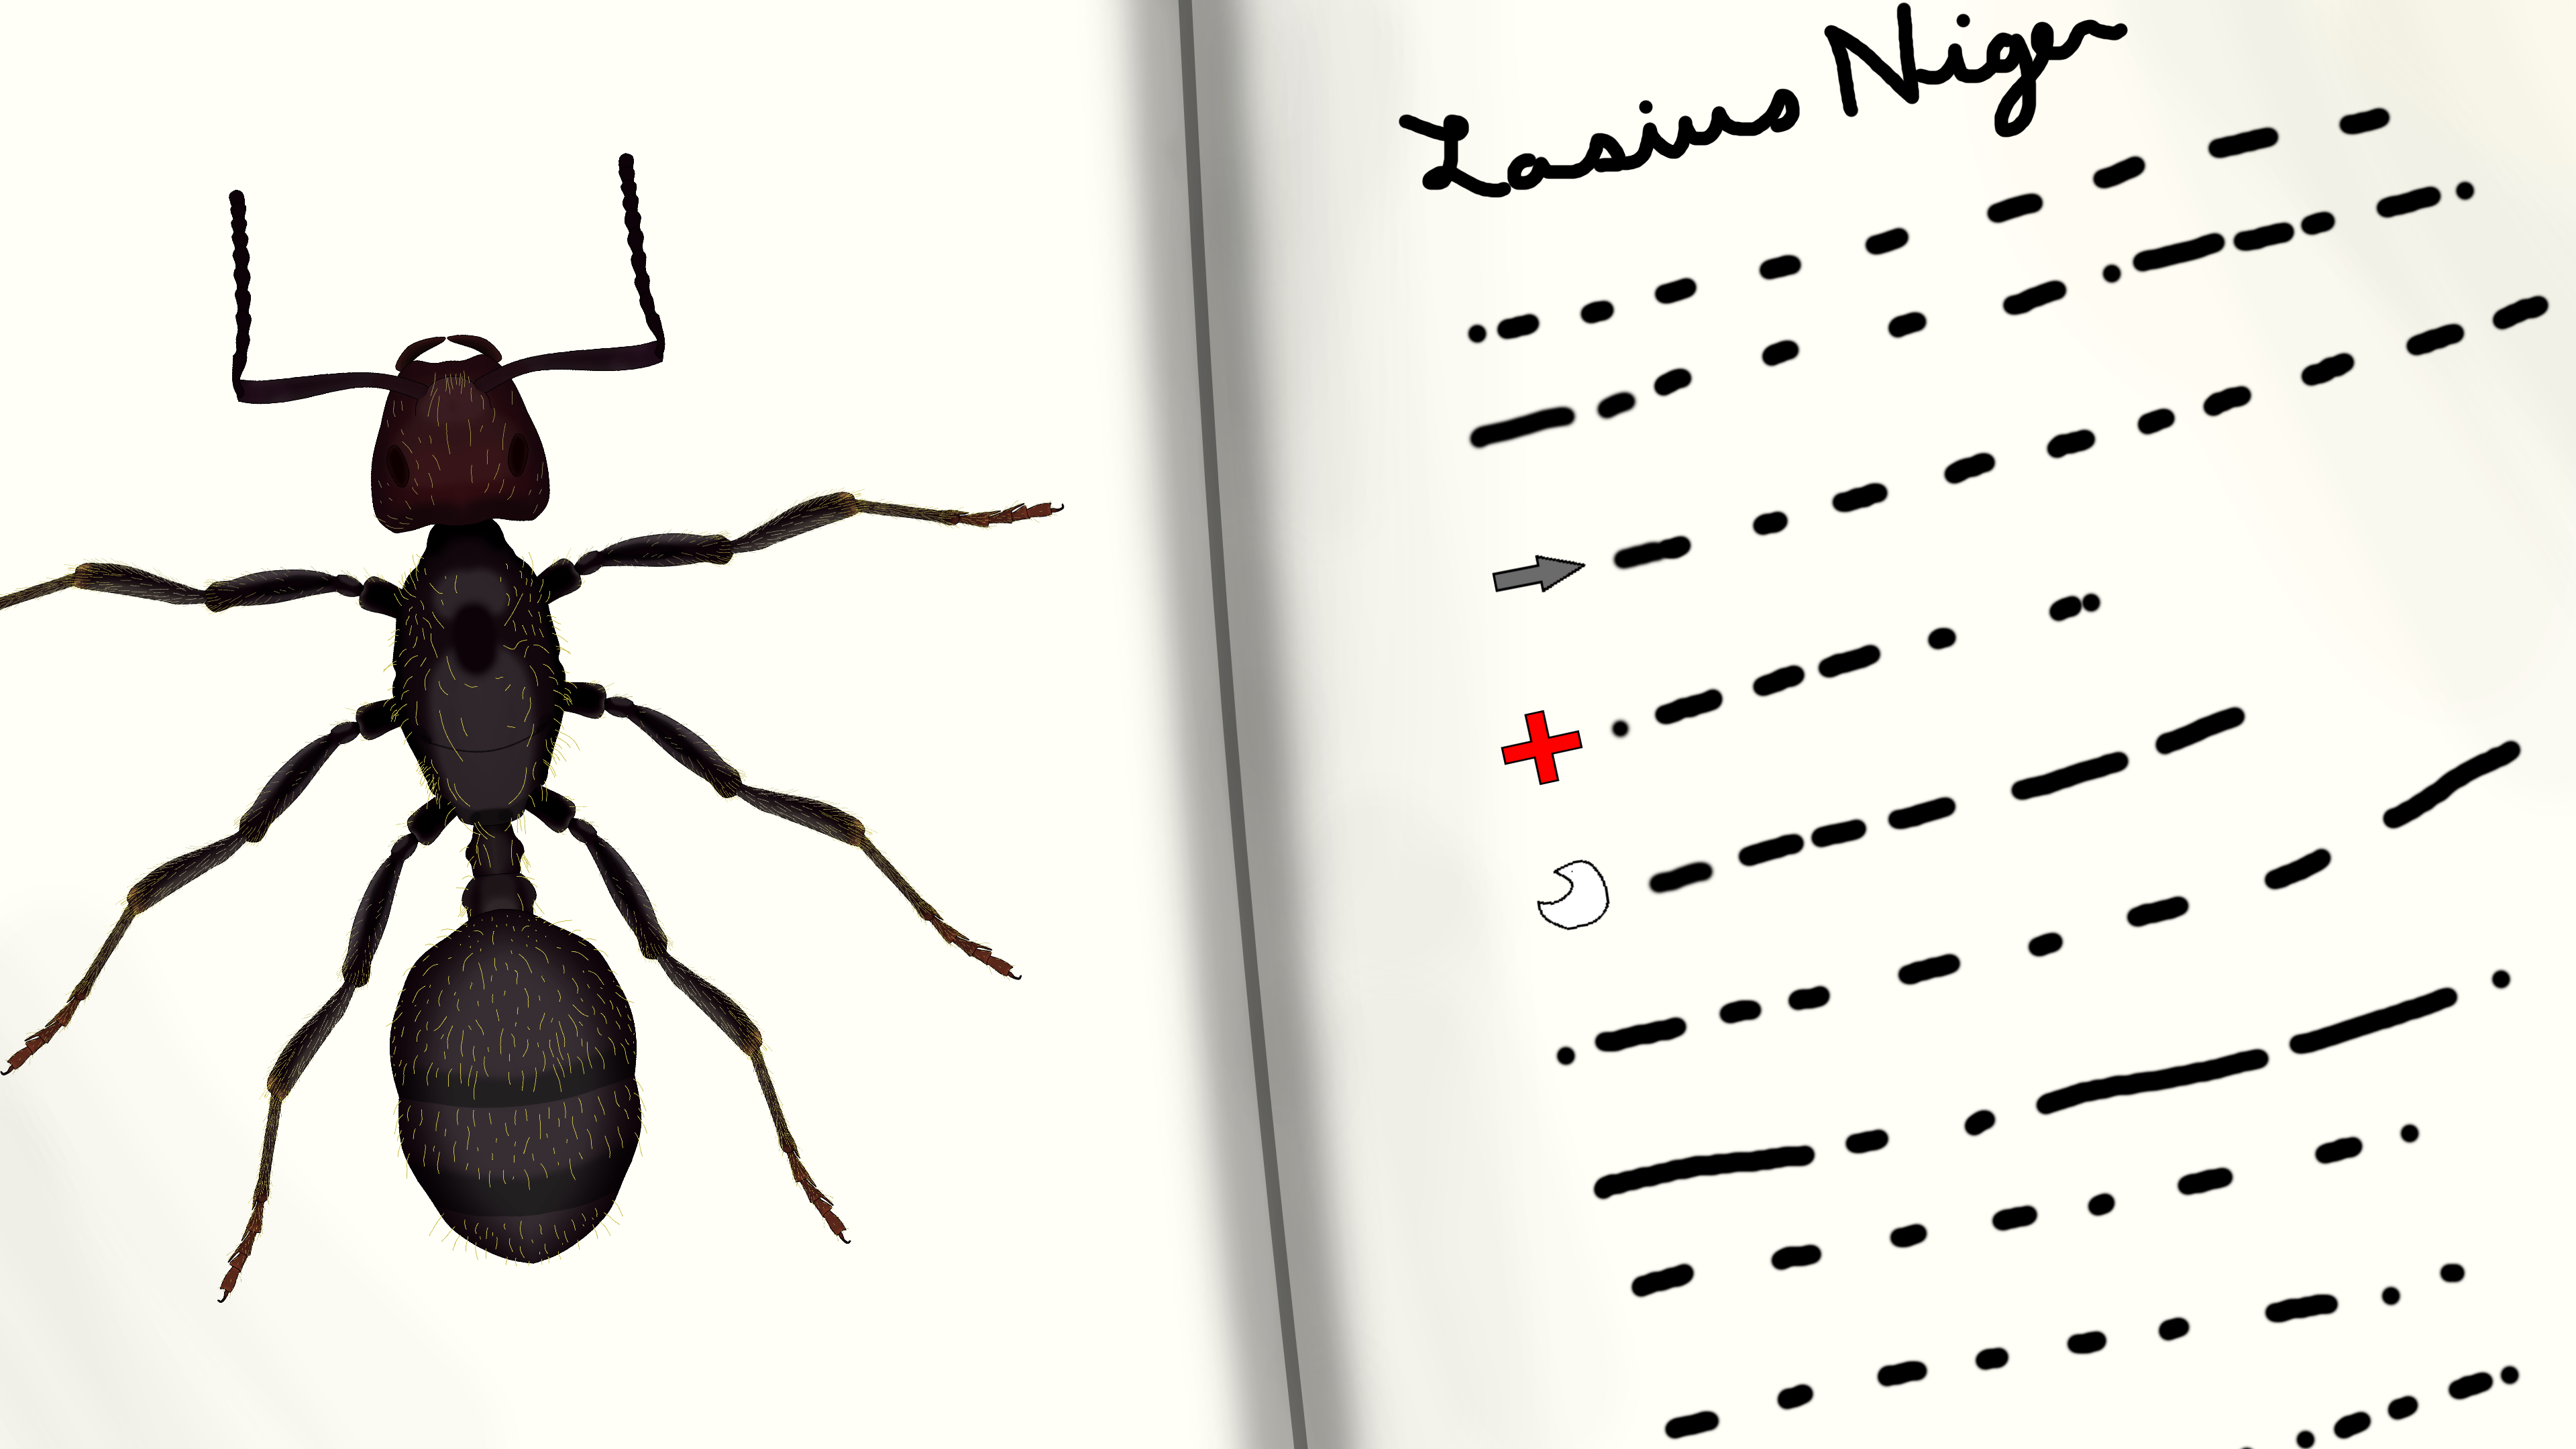 Lasius Niger